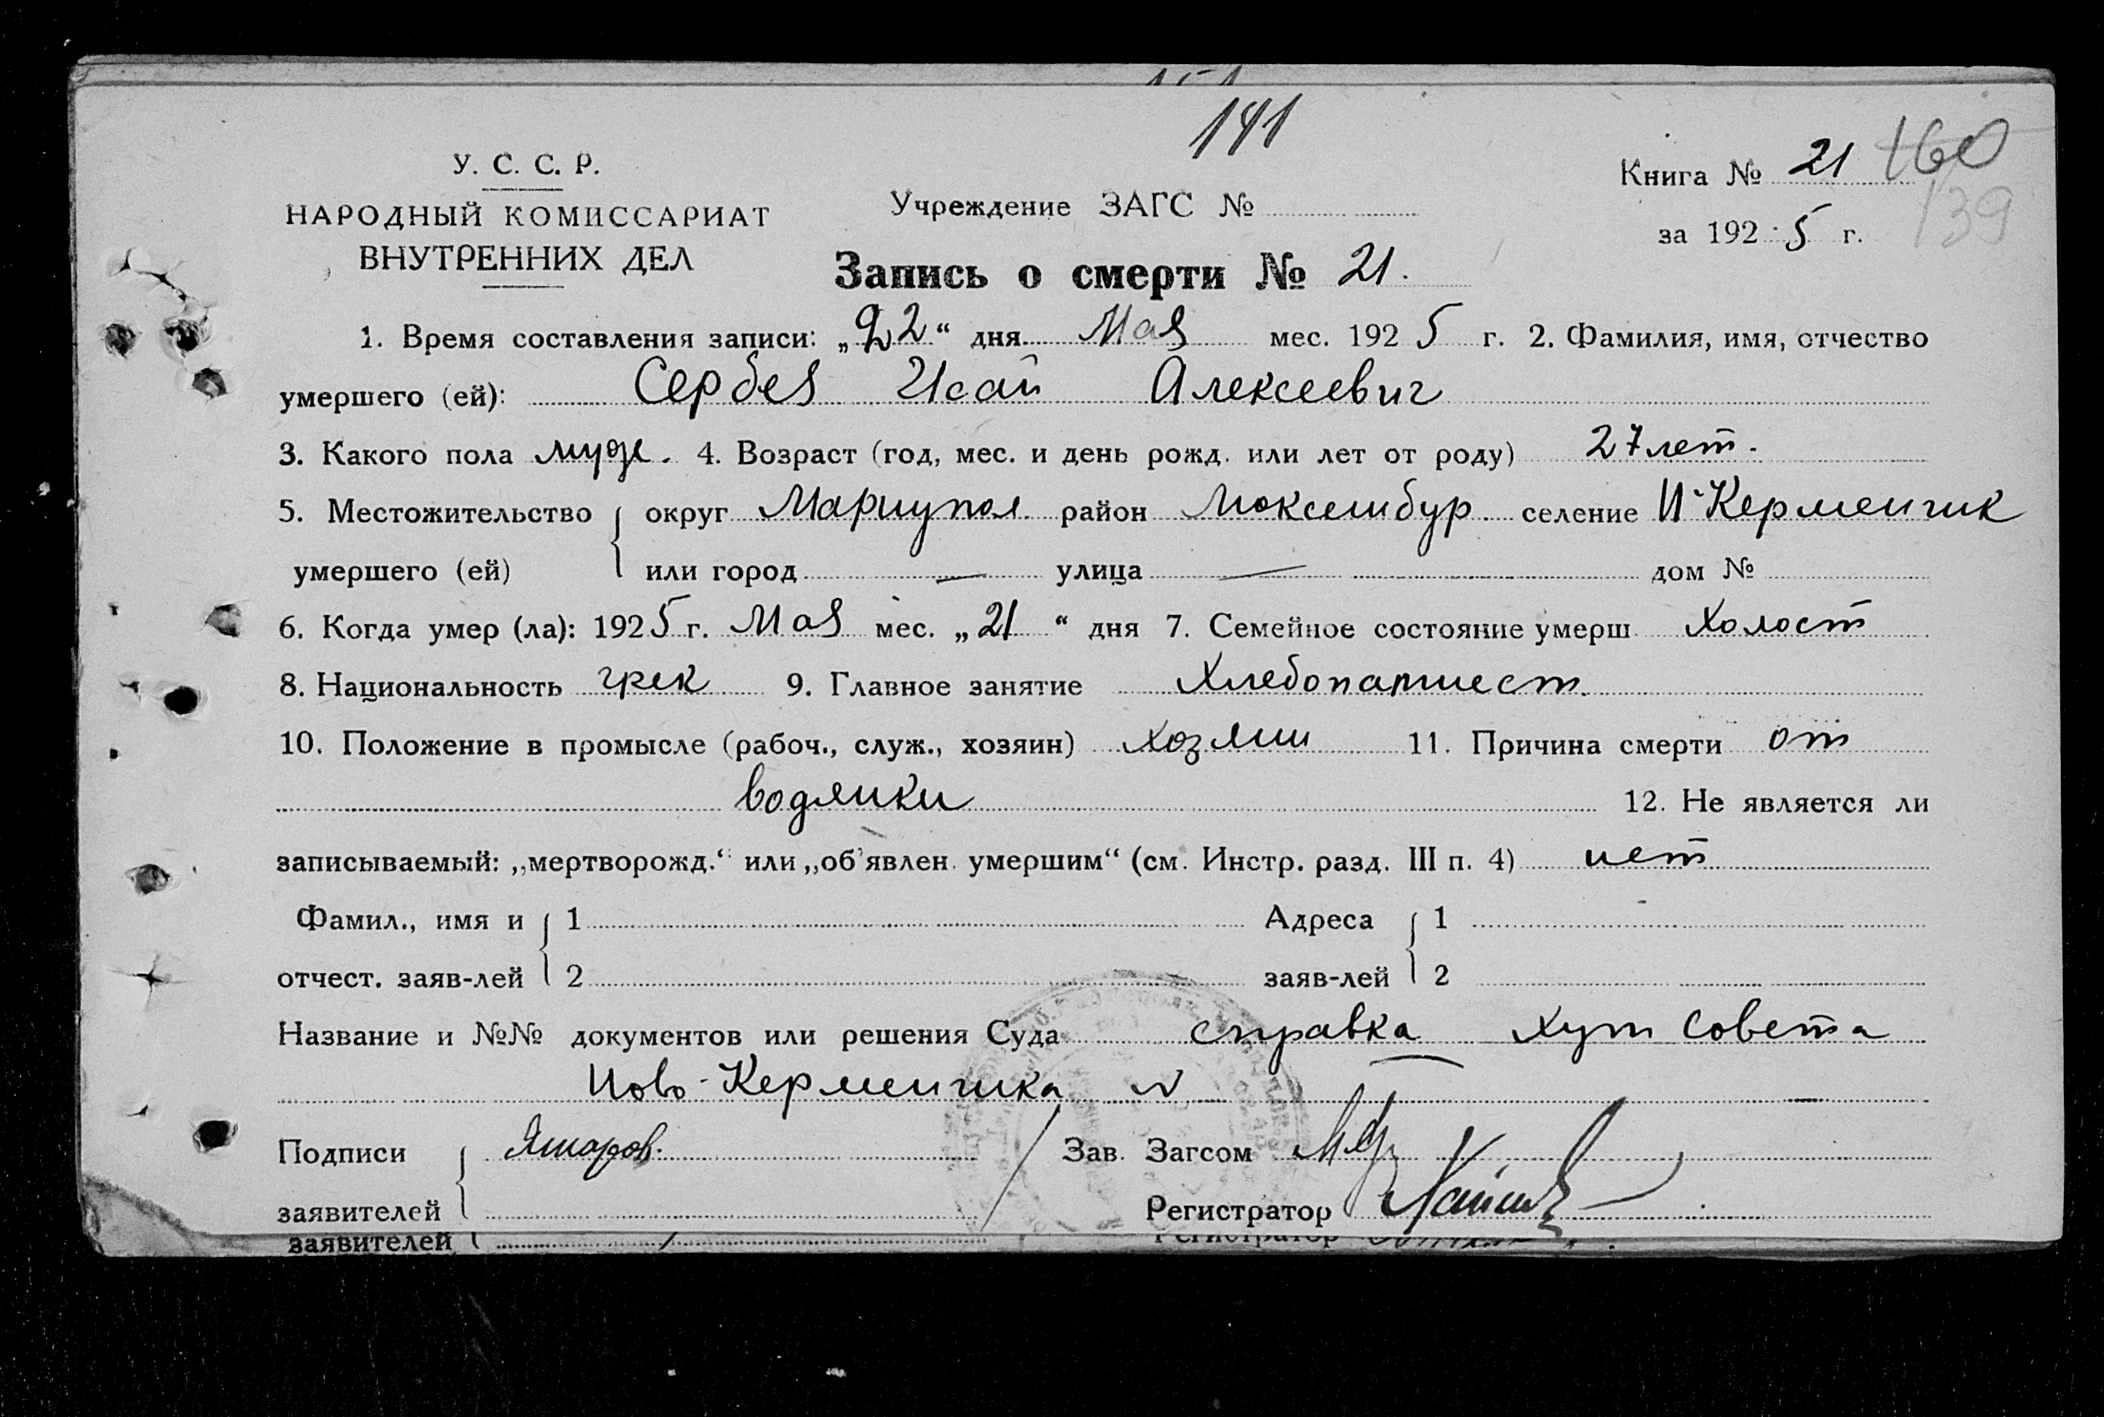 141
У. С. С. Р.
НАРОДНЫЙ КОМИССАРИАТ
ВНУТРЕННИХ ДЕЛ
Учреждение ЗАГС №
Книга № 21 160
139
за 1925 г.
Запись о смерти № 21.
1. Время составления записи: „22“ дня Мая мес. 1925 г. 2. Фамилия, имя, отчество
умершего (ей): Сербея Исай Алексеевич
3. Какого пола муж. 4. Возраст (год, мес. и день рожд. или лет от роду) 27 лет.
5. Местожительство округ Мариупол район Мокселибур селение Н-Керменчик
умершего (ей) или город — улица — дом №
6. Когда умер (ла): 1925 г. Мая мес. „21“ дня 7. Семейное состояние умерш. холост
8. Национальность грек 9. Главное занятие Хлебопашест.
10. Положение в промысле (рабоч., служ., хозяин) хозяин 11. Причина смерти от
водянки 12. Не является ли
записываемый: „мертворожд.“ или „об'явлен. умершим“ (см. Инстр. разд. III п. 4) нет
Фамил., имя и 1 Адреса 1
отчест. заяв-лей 2 заяв-лей 2
Название и №№ документов или решения Суда справка Хут Совета
Ново-Керменчика N
Подписи Яшаров. Зав. Загсом
заявителей Регистратор
заявителей Регистратор